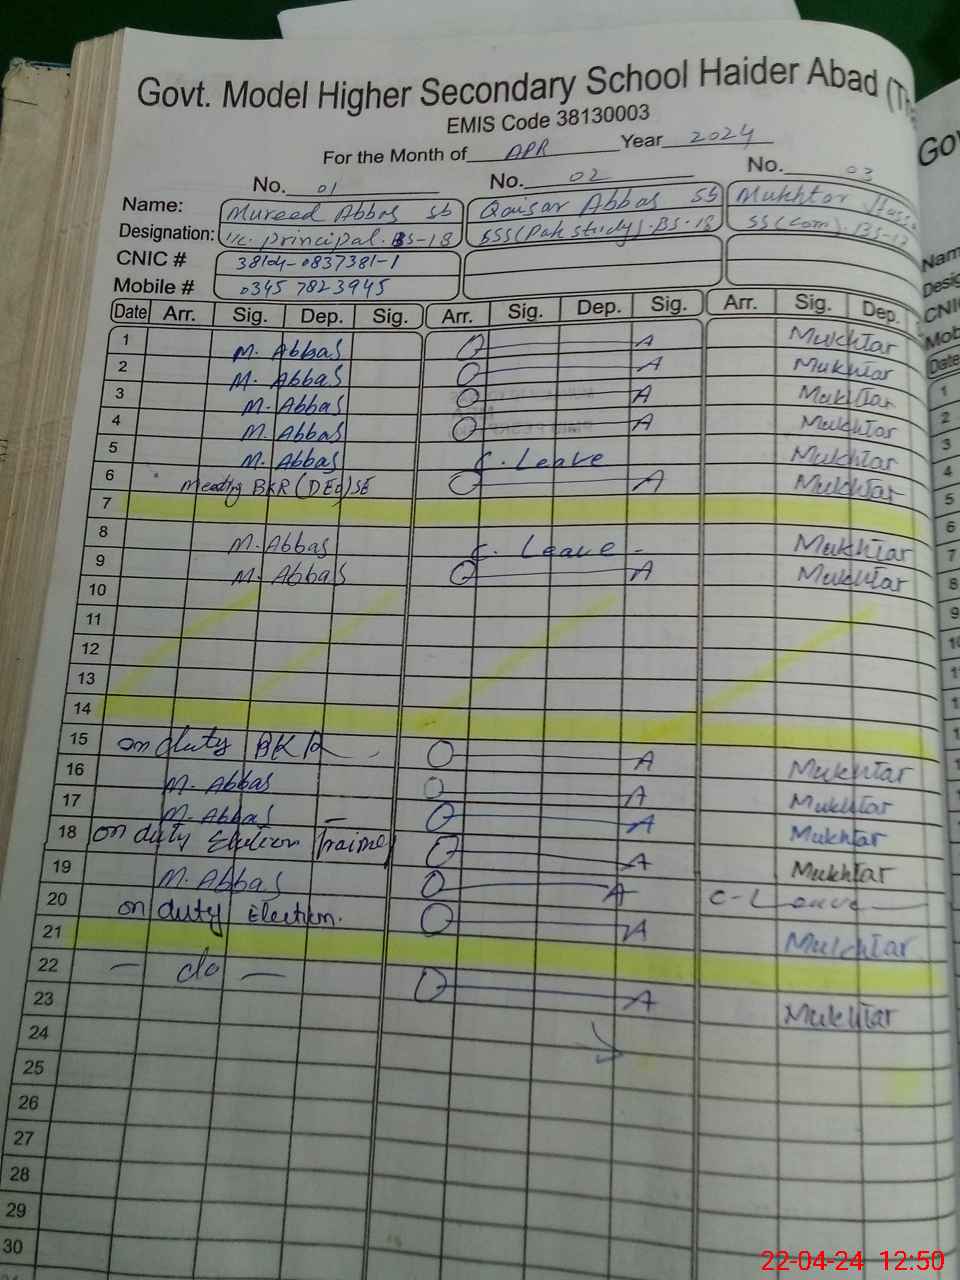 Govt. Model Higher Secondary School Haider Abad
EMIS Code 38130003
For the Month of APR Year 2024
No. 01 No. 02 No. 03
Name: Mureed Abbas sb Qaisar Abbas sb Mukhtar
Designation: I/c. principal. BS-18 SSS(Pak study). BS-18 SS (com). BS-17
CNIC # 38104-0837381-1
Mobile # 0345 7823945
Date Arr. Sig. Dep. Sig. Arr. Sig. Dep. Sig. Arr. Sig. Dep.
1 M. Abbas A Mukhtar
2 M. Abbas A Mukhtar
3 M. Abbas A Mukhtar
4 M. Abbas A Mukhtar
5 M. Abbas C. Leave Mukhtar
6 Meeting BKR (DEO)SE A Mukhtar
7
8 M. Abbas C. Leave - Mukhtar
9 M. Abbas A Mukhtar
10
11
12
13
14
15 on duty BKR A Mukhtar
16 M. Abbas A Mukhtar
17 M. Abbas A Mukhtar
18 on duty Election Training A Mukhtar
19 M. Abbas A C-Leave
20 on duty Election. A Mukhtar
21
22 - do - A Mukhtar
23
24
25
26
27
28
29
30
Nam
Desig
CNIC
Mob
Date
1
2
3
4
5
6
7
8
9
22-04-24 12:50